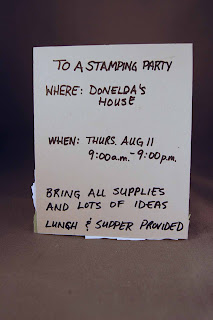 TO A STAMPING PARTY
WHERE: DONELDA'S
HOUSE
WHEN: THURS. AUG 11
9:00a.m. - 9:00p.m.
BRING ALL SUPPLIES
AND LOTS OF IDEAS
LUNCH & SUPPER PROVIDED